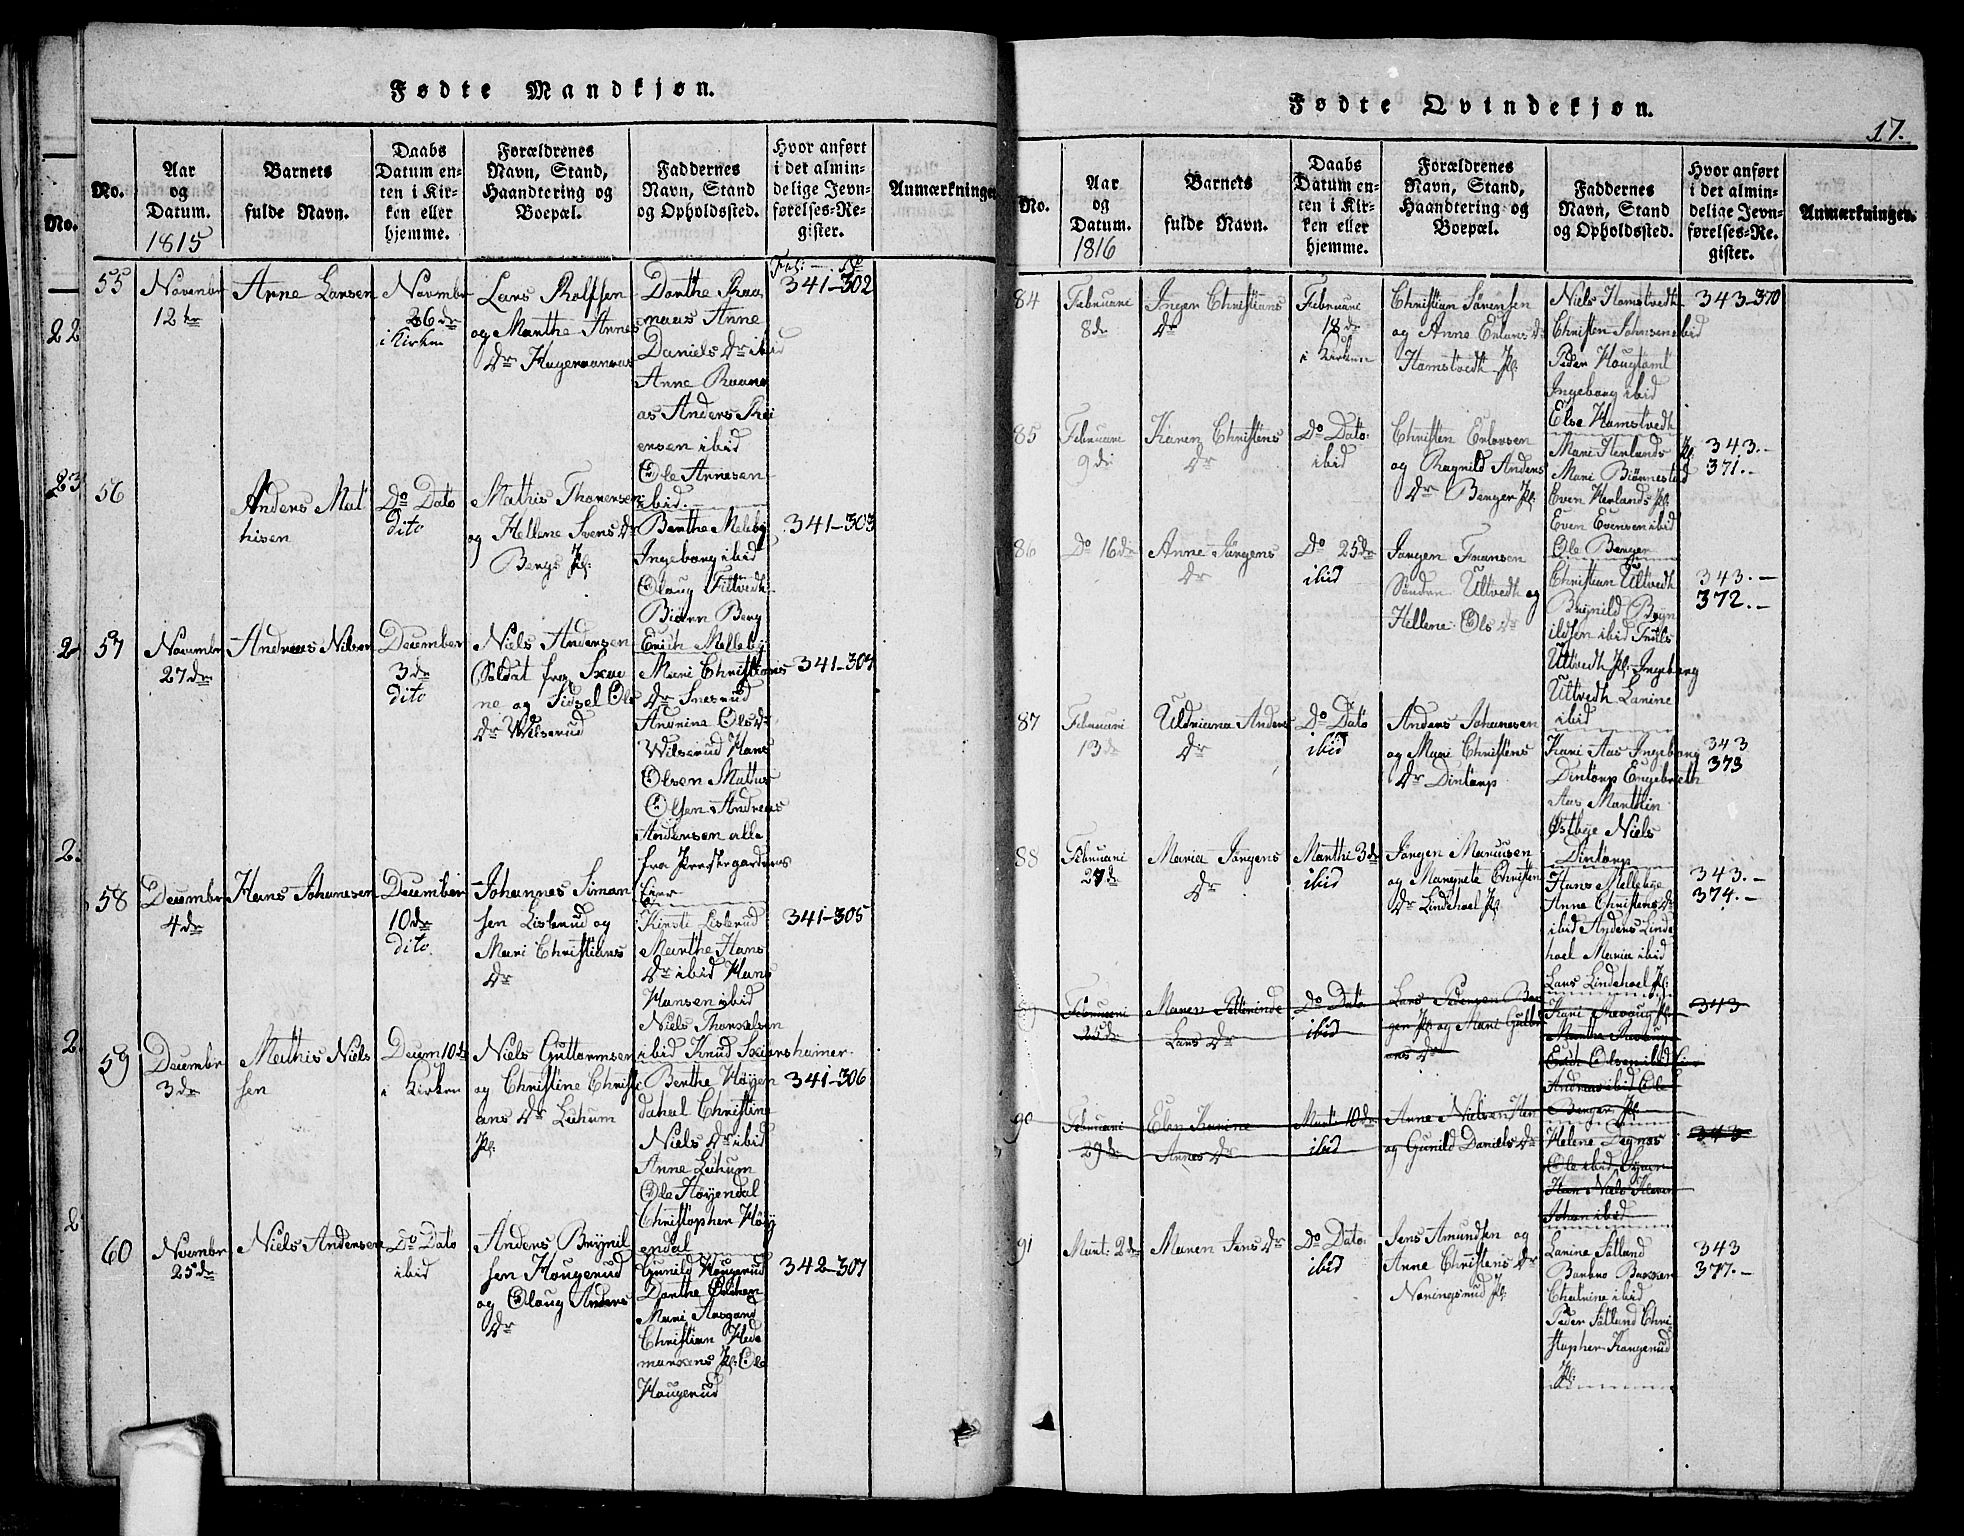 Fødte Mandkjøn.
No.
Aar
og
Datum.
1815
Barnets
fulde Navn.
Daabs
Datum en-
ten i Kir-
ken eller
hjemme.
Forældrenes
Navn, Stand,
Haandtering og
Boepæl.
Faddernes
Navn, Stand
og Opholdssted.
Hvor anført
i det almin-
delige Jevn-
førelses-Re-
gister.
Anmærkninger
55
Novembr
12te
Arne Larsen
Novmbr
26de
i Kirken
Lars Rolfsen
og Marthe Arnes
Dr
Dorthe
Anne
Daniels Dr ibid
Anne
as Anders
ersen ibid
Ole Arnesen
ibid
341-302
56
Anders Mat
hisen
Do Dato
dito
Mathis Thoresen
og Hellene Svens Dr
Bergs Pl:
Berthe Meleby
Ingeborg ibid
Olaug Filtvedt
Biørn Berg
Erich Melleby
341-303
57
Novembr
27de
Andreas Nilsen
December
3de
dito
Niels Andersen
Soldat fra
ne og Sidsel Ols
Dr Wilserud
Mari Christians
Dr Snesrud
Andrine Ols Dr
Wilserud Hans
Olsen Mattis
Olsen Andreas
Andersen alle
fra Prestegaardens
Eier
341-304
58
Decembr
4de
Hans Johanesen
December
10de
dito
Johannes Simon
sen Lislerud og
Mari Christians
Dr
Kirsti Lislerud
Marthe Hans
Dr ibid Hans
Hansen ibid
Niels
ibid Knud
341-305
59
Decembr
3de
Mathis Niels
sen
Decem 10de
i Kirken
Niels Guttormsen
og Christine Christi
ans Dr Lechum
Pl:
Berthe Høyen
dahl Christine
Niels Dr ibid
Anne Lechum
Ole Høyendal
Christopher Høy
endal
341-306
60
Novmbr
25de
Niels Andersen
Do Dato
ibid
Anders Brynil
sen Hougerud
og Olaug Anders
Dr
Gunild Hougerud
Dorthe
Mari Aasgard
Christian Hede
markens Pl: Ole
Hougerud
342-307
Fødte Qvindekjøn.
17.
No.
Aar
og
Datum.
1816
Barnets
fulde Navn.
Daabs
Datum en-
ten i Kir-
ken eller
hjemme.
Forældrenes
Navn, Stand,
Haandtering og
Boepæl.
Faddernes
Navn, Stand
og Opholdssted.
Hvor anført
i det almin-
delige Jevn-
førelses-Re-
gister.
Anmærkninger.
84
Februari
8de
Inger Christians
Dr
Februari
18de
i Kirken
Christian Sørensen
og Anne Eners Dr
Hamstvedt Pl:
Niels Hamstvedt
Christen Johnsen ibid
Peder Hougtomt
Ingeborg ibid
Else Hamstvedt
343-370
85
Februari
9de
Karen Christens
Dr
Do Dato
ibid
Christen Enersen
og Ragnild Anders
Dr Berger Pl:
Mari Herlands Pl:
Mari Biørnestad
Even Herlands Pl:
Even Evensen ibid
Ole Berger
343.-
371.-
86
Do 16de
Anne Jørgens
Dr
Do 25de
ibid
Jørgen Fransen
Søndre Ultvedt og
Hellene Ols Dr
Christian Ultvedt
Brynild Bryn
ildsen ibid Truls
Ultvedt Pl: Ingeborg
Ultvedt Lanine
ibid
343.-
372.-
87
Februari
13de
Uldriana Anders
Dr
Do Dato
ibid
Anders Johanesen
og Mari Christens
Dr Dintorp
Kari Aas Ingeborg
Dintorp Engebreth
Aas Marthin
Østbye Niels
Dintorp
343
373
88
Februari
27de
Maria Jørgens
Dr
Marthi 3de
ibid
Jørgen Marcusen
og Margrete Christen
Dr Lindehoel Pl:
Hans Mellebye
Anne Christens Dr
ibid Anders Linde
hoel Maria ibid
Lars Lindehoel Pl:
343.-
374.-
89
Februari
25de
Maren Pettrinde
Lars Dr
Do Dato
ibid
Lars Pedersen Ber
ger Pl: og Mari Gulbr
ans Dr
Andreas ibid Ole
Berger Pl:
343
90
Februari
29de
Elen Karine
Arnes Dr
Marti 10de
ibid
Arne Nielsen
og Gunild Daniels Dr
Helene
Ole ibid
Johan ibid
343
91
Marti 2de
Maren Jens Dr
Do Dato
ibid
Jens Amundsen og
Anne Christens Dr
Noringsrud Pl:
Lanine Sølland
Barbro
Chatrine ibid
Peder Sølland Chri
stopher Kongerud
Pl:
343
377.-